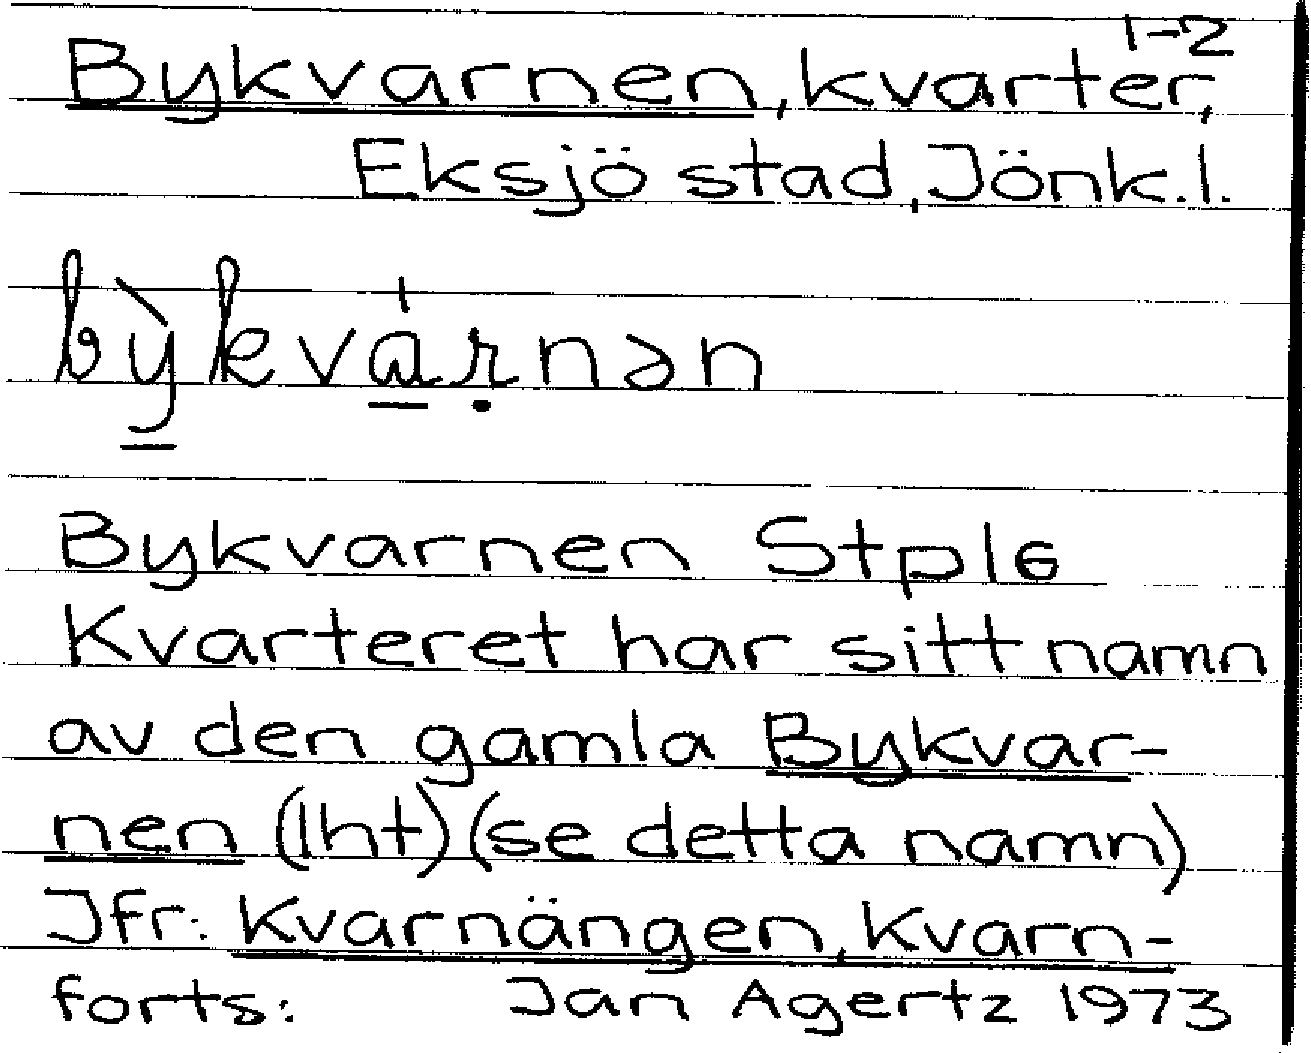 1-2
Bykvarnen, kvarter,
Eksjö stad, Jönk. l.
bỳkvárṇən
Bykvarnen Stpl6
Kvarteret har sitt namn
av den gamla Bykvar-
nen (lht) (se detta namn)
Jfr: Kvarnängen, Kvarn-
forts: Jan Agertz 1973